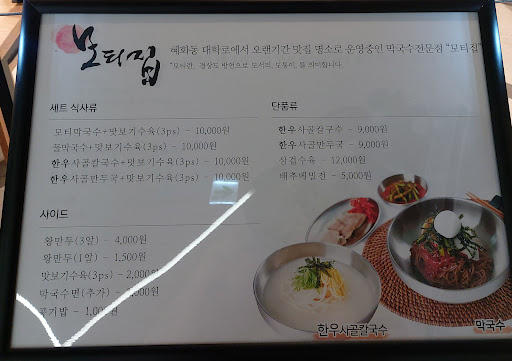 모티집
혜화동 대학로에서 오랜기간 맛집 명소로 운영중인 막국수전문점 "모티집"
"모티란, 경상도 방언으로 모서리, 모퉁이, 를 의미합니다.
세트 식사류
모티막국수+맛보기수육(3ps) - 10,000원
들막국수+맛보기수육(3ps) - 10,000원
한우사골칼국수+맛보기수육(3ps) - 10,000원
한우사골만두국+맛보기수육(3ps) - 10,000원
사이드
왕만두(3알) - 4,000원
왕만두(1알) - 1,500원
맛보기수육(3ps) - 2,000원
막국수면(추가) - ,000원
공기밥 - 1,000원
단품류
한우사골칼국수 - 9,000원
한우사골만두국 - 9,000원
삼겹수육 - 12,000원
배추메밀전 - 5,000원
한우사골칼국수
막국수